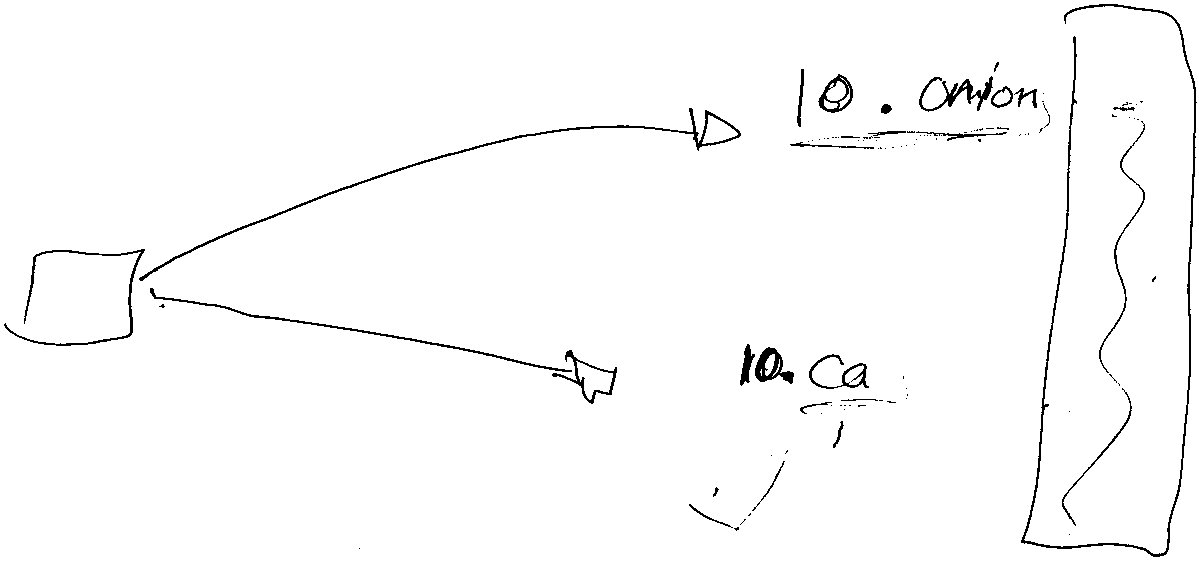 10. onion
10. Ca